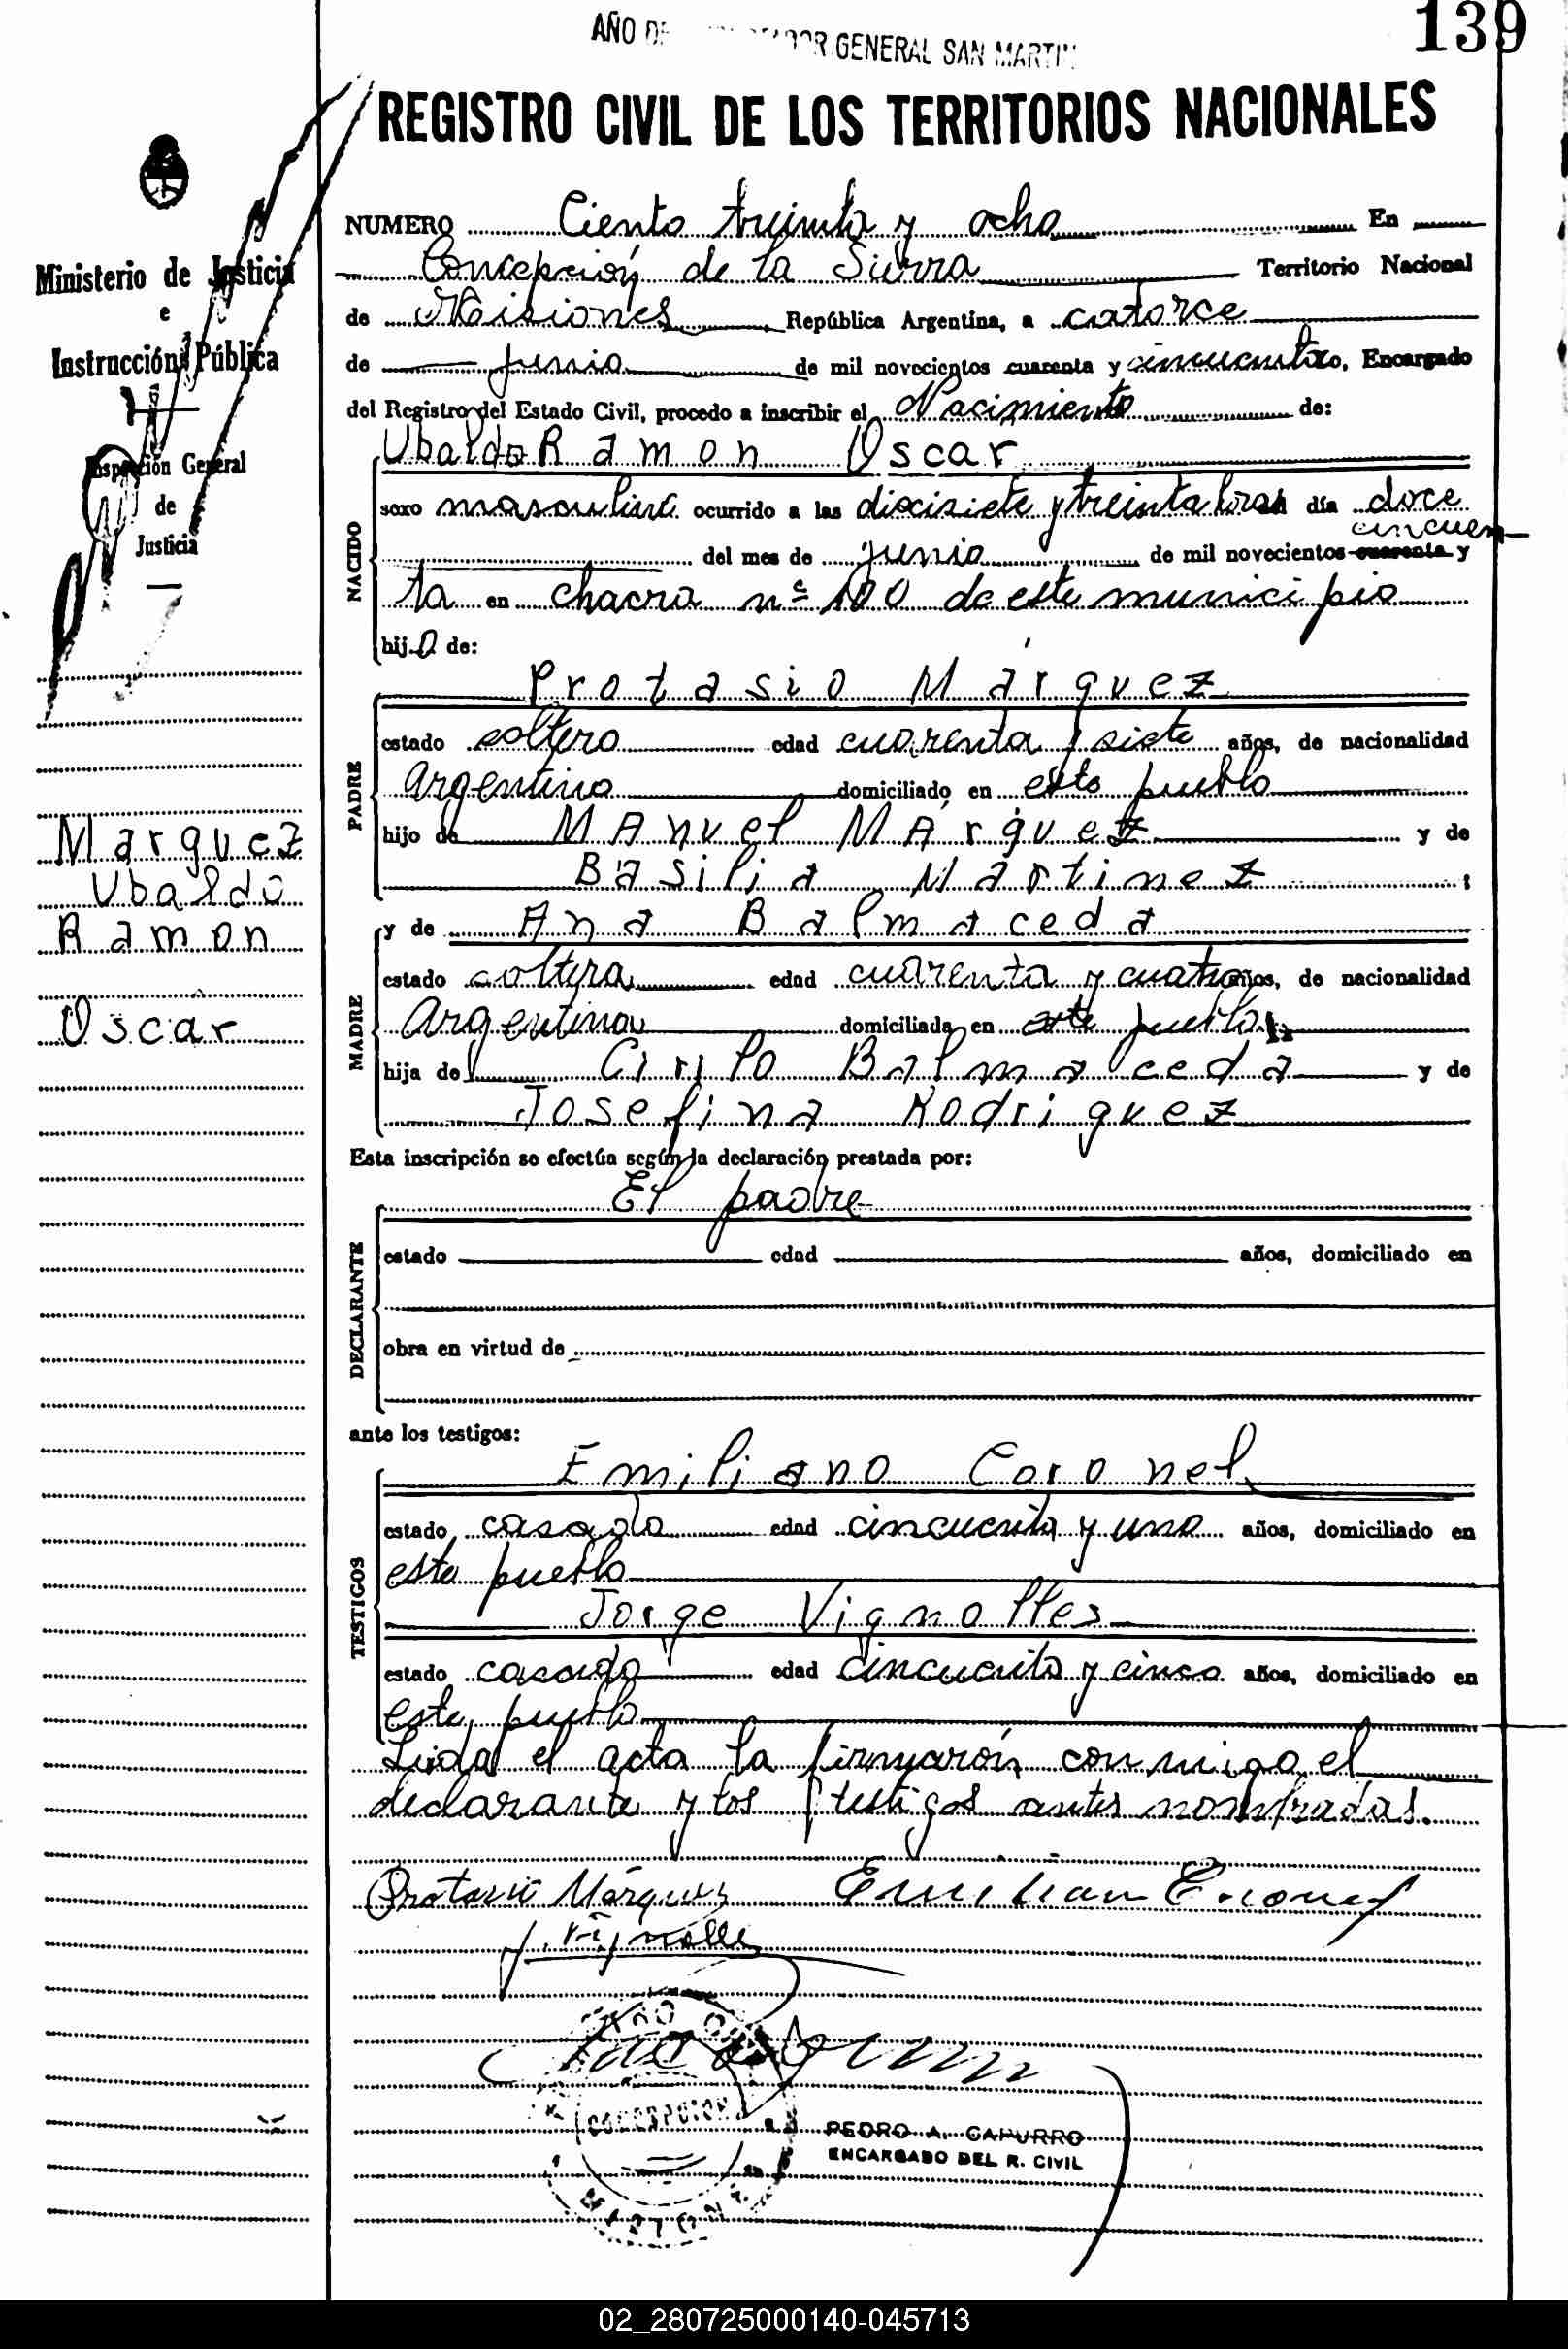 139
AÑO DE GENERAL SAN MARTIN
REGISTRO CIVIL DE LOS TERRITORIOS NACIONALES
Ministerio de Justicia
e
Instrucción Pública
Inspección General
de
Justicia
Marquez
Ubaldo
Ramon
Oscar
NUMERO Ciento treinta y ocho En
Concepción de la Sierra Territorio Nacional
de Misiones República Argentina, a catorce
de junio de mil novecientos cuarenta y cincuenta yo, Encargado
del Registro del Estado Civil, procedo a inscribir el Nacimiento de:
Ubaldo Ramon Oscar
NACIDO
sexo masculino ocurrido a las diecisiete y treinta horas día doce
cincuen
del mes de junio de mil novecientos cuarenta y
ta en chacra nº 100 de este municipio
hijo de:
Protasio Márquez
PADRE
estado soltero edad cuarenta y siete años, de nacionalidad
argentino domiciliado en este pueblo
hijo de Manuel Márquez y de
Basilia Martinez ;
y de Ana Balmaceda
MADRE
estado soltera edad cuarenta y cuatro años, de nacionalidad
Argentina domiciliada en este pueblo
hija de Cirilo Balmaceda y de
Josefina Rodriguez
Esta inscripción se efectúa según la declaración prestada por:
El padre
DECLARANTE
estado edad años, domiciliado en
obra en virtud de
ante los testigos:
Emiliano Coronel
TESTIGOS
estado casado edad cincuenta y uno años, domiciliado en
este pueblo
Jorge Vignolles
estado casado edad cincuenta y cinco años, domiciliado en
este pueblo
Leida el acta la firmarón conmigo el
declarante y los testigos antes nombrados.
Protasio Márquez Emiliano Coronel
J. Vignolle
CONCEPCION
PEDRO A. CAPURRO
ENCARGADO DEL R. CIVIL
02_280725000140-045713